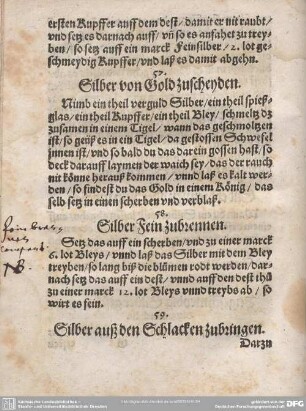 ersten Kupffer auff dem dest / damit er nit raubt /
vnd setz es darnach auff / vñ so es anfahet zu trey-
ben / so setz auff ein marck Feinsilber / 2. lot ge-
schmeydig Kupffer / vnd laß es damit abgehn.
57.
Silber von Gold zuscheyden.
Nimb ein theil verguld Silber / ein theil spieß-
glas / ein theil Kupffer / ein theil Bley / schmeltz dz
zusamen in einem Tigel / wann das geschmoltzen
ist / so geüß es in ein Tigel / da gestossen Schwefel
jnnen ist / vnd so bald du das darein gossen hast / so
deck darauff laymen der waich sey / das der rauch
nit könne herauß kommen / vnnd laß es kalt wer-
den / so findest du das Gold in einem König / das
selb setz in einen scherben vnd verblaß.
58.
Silber Fein zubrennen.
Setz das auff ein scherben / vnd zu einer marck
6. lot Bleys / vnnd laß das Silber mit dem Bley
treyben / so lang biß die blůmen rodt werden / dar-
nach setz das auff ein dest / vnnd auff den dest thů
zu einer marck 12. lot Bleys vnnd treybs ab / so
wirt es fein.
59.
Silber auß den Schlacken zubringen.
Darzu
NB.